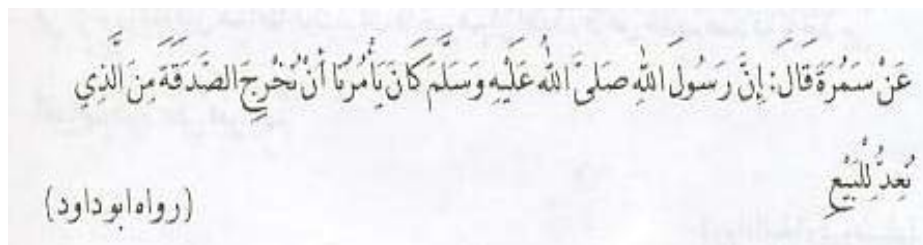 عَنْ سَمُرَةَ قَالَ: إِنَّ رَسُولَ اللهِ صَلَّى اللهُ عَلَيْهِ وَسَلَّمَ كَانَ يَأْمُرُنَا أَنْ نُخْرِجَ الصَّدَقَةَ مِنَ الَّذِي
نُعِدُّ لِلْبَيْعِ
(رواه ابوداود)